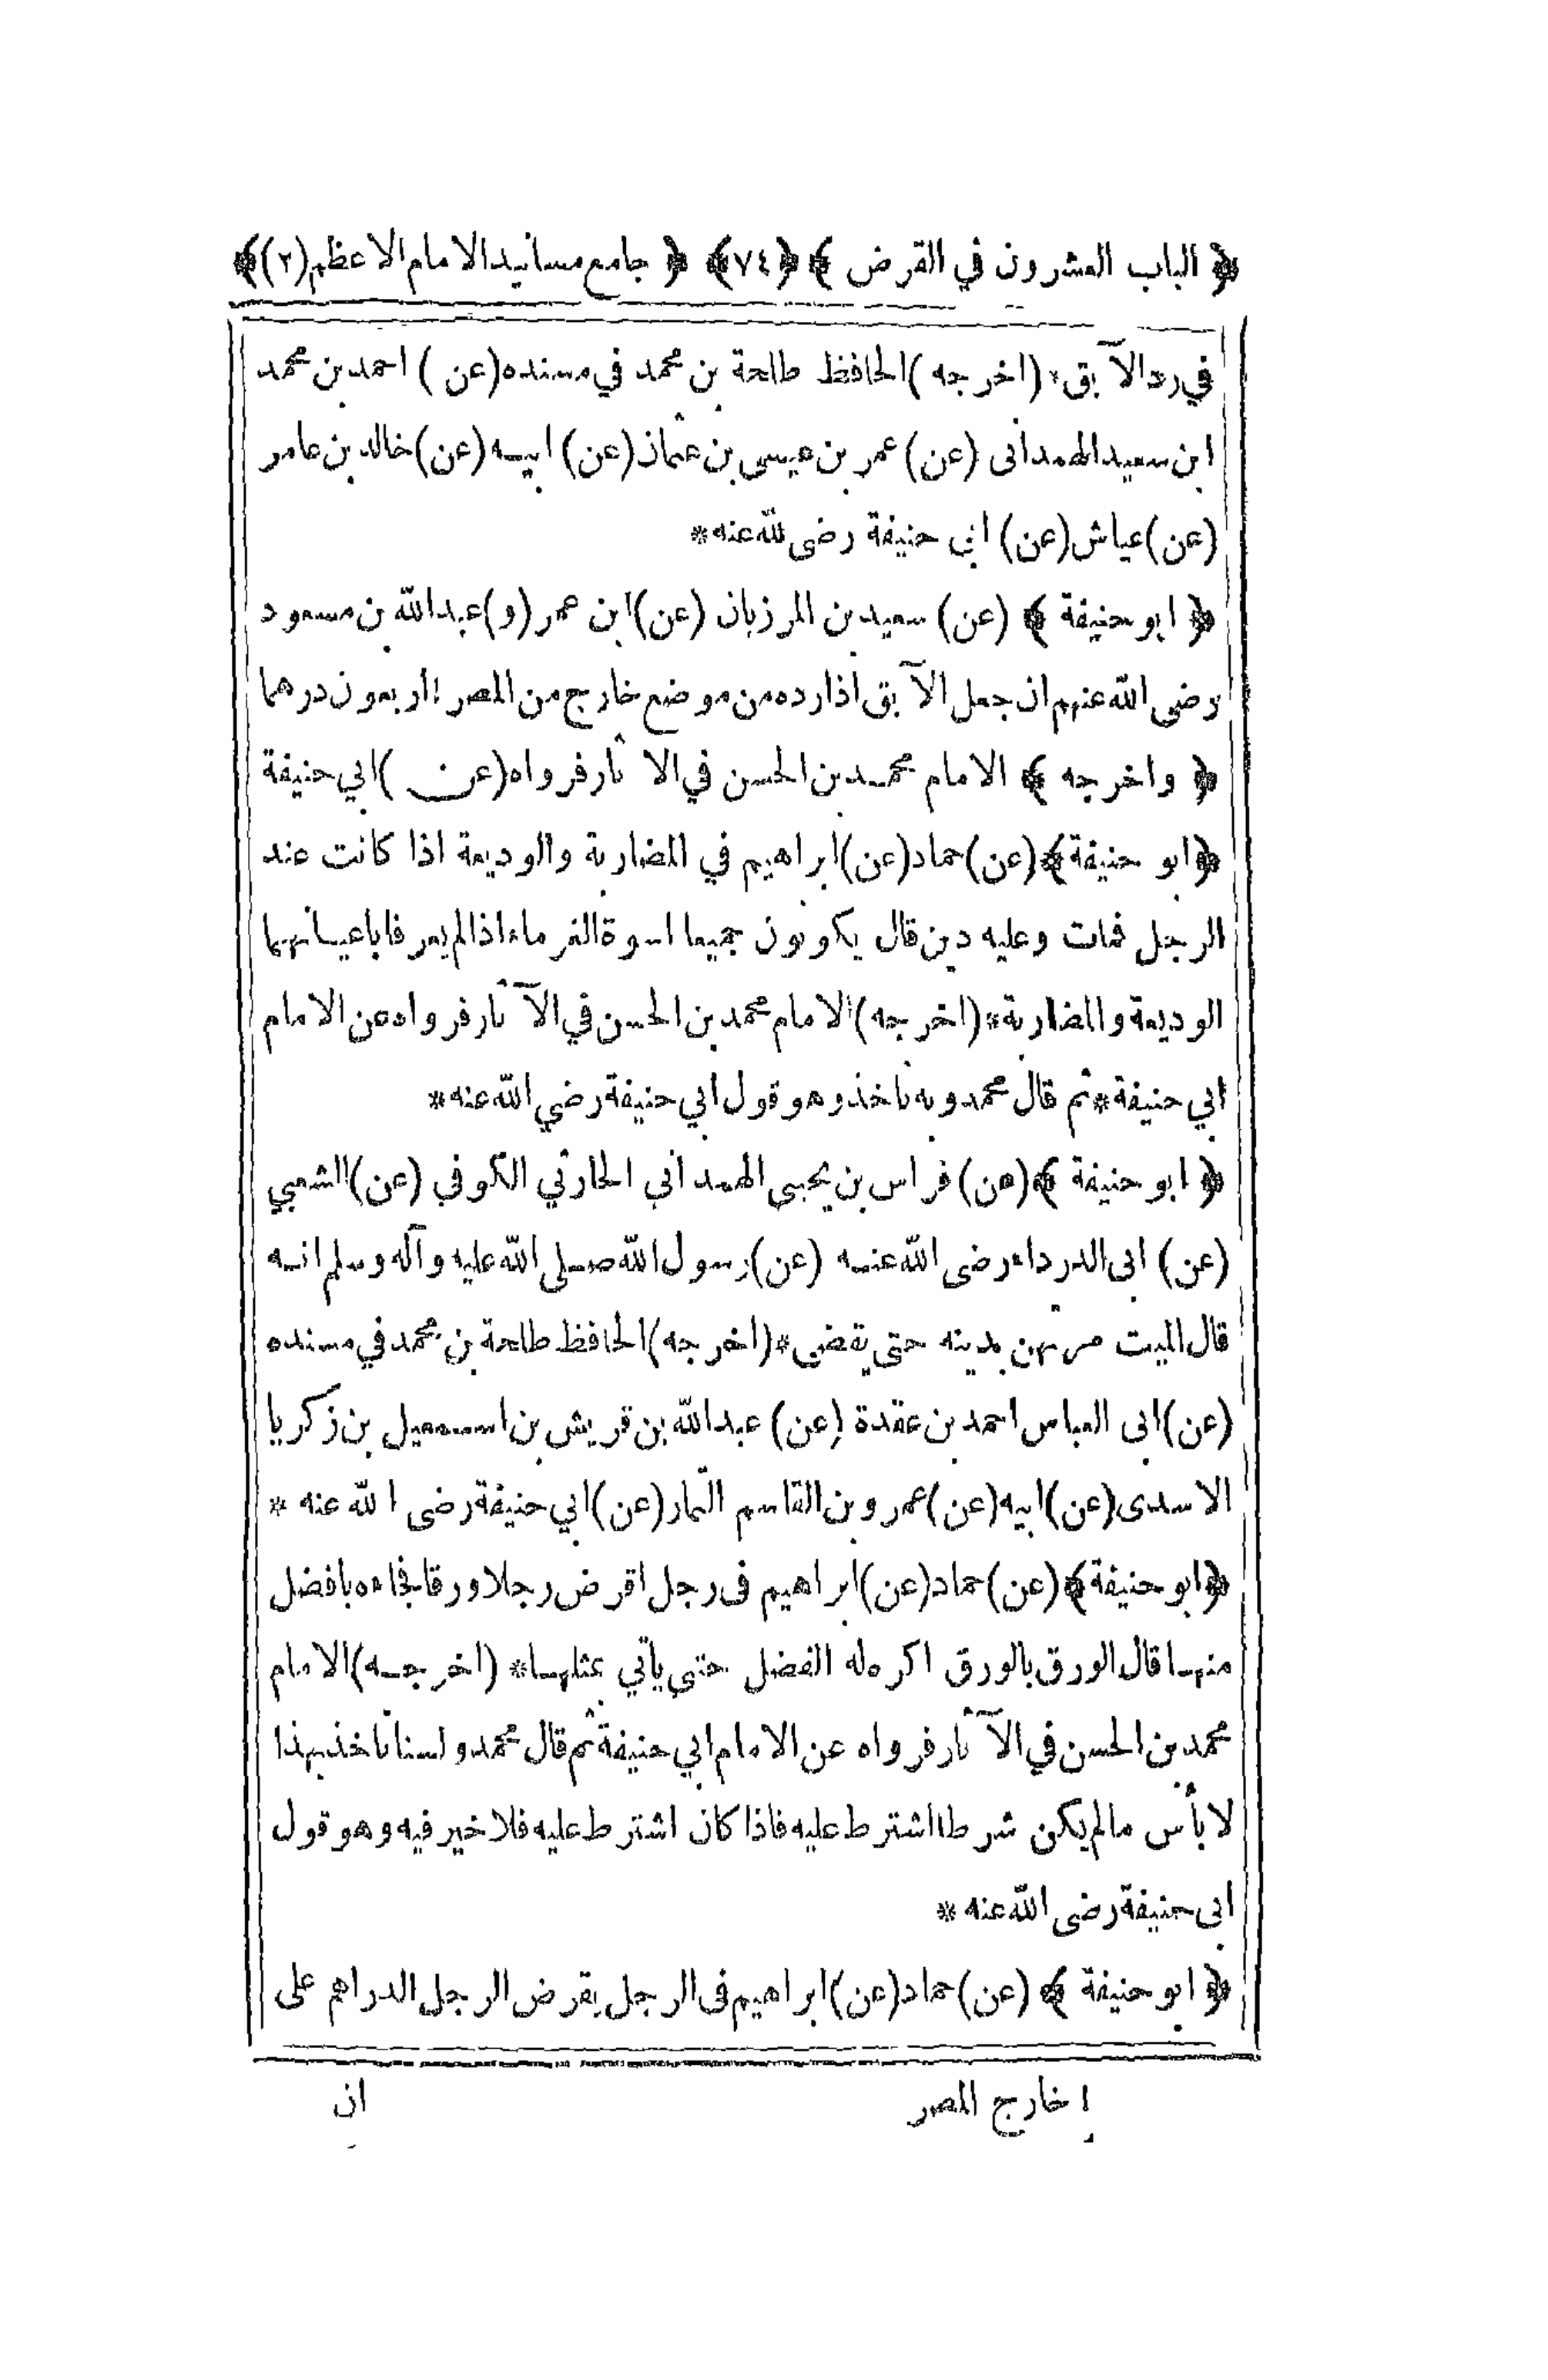 ﴿ الباب العشرون في القرض ﴾ ﴿٧٤﴾ ﴿ جامع مسانيد الامام الاعظم (٢)﴾
في رد الآبق * (اخرجه) الحافظ طلحة بن محمد في مسنده (عن) احمد بن محمد
ابن سعيد الهمدانى (عن) عمر بن عيسى بن عثمان (عن) ابيه (عن) خالد بن عامر
(عن) عياش (عن) ابي حنيفة رضى الله عنه *
﴿ ابو حنيفة ﴾ (عن) سعيد بن المرزبان (عن) ابن عمر (و) عبد الله بن مسعود
رضى الله عنهم ان جعل الآبق اذا رده من موضع خارج من المصر ١ اربعون درهما
﴿ واخرجه ﴾ الامام محمد بن الحسن في الاثار فرواه (عن) ابي حنيفة
﴿ابو حنيفة﴾ (عن) حماد (عن) ابراهيم في المضاربة والوديعة اذا كانت عند
الرجل فمات وعليه دين قال يكونون جميعا اسوة الغرماء اذا لم يعرفا باعيانهما
الوديعة والمضاربة * (اخرجه) الامام محمد بن الحسن في الآثار فرواه عن الامام
ابي حنيفة * ثم قال محمد وبه ناخذ وهو قول ابي حنيفة رضي الله عنه *
﴿ ابو حنيفة ﴾ (عن) فراس بن يحيى الهمداني الحارثي الكوفي (عن) الشعبي
(عن) ابى الدرداء رضى الله عنه (عن) رسول الله صلى الله عليه وآله وسلم انه
قال الميت مرتهن بدينه حتى يقضى * (اخرجه) الحافظ طلحة بن محمد في مسنده
(عن) ابى العباس احمد بن عقدة (عن) عبد الله بن قريش بن اسمعيل بن زكريا
الاسدى (عن) ابيه (عن) عمرو بن القاسم التمار (عن) ابي حنيفة رضى الله عنه *
﴿ابو حنيفة﴾ (عن) حماد (عن) ابراهيم فى رجل اقرض رجلا ورقا فجاءه بافضل
منها قال الورق بالورق اكره له الفضل حتى ياتي بمثلها * (اخرجه) الامام
محمد بن الحسن في الآثار فرواه عن الامام ابي حنيفة ثم قال محمد ولسنا ناخذ بهذا
لا بأس ما لم يكن شرطا اشترط عليه فاذا كان اشترط عليه فلا خير فيه وهو قول
ابى حنيفة رضى الله عنه *
﴿ ابو حنيفة ﴾ (عن) حماد (عن) ابراهيم فى الرجل يقرض الرجل الدراهم على
١ خارج المصر
ان